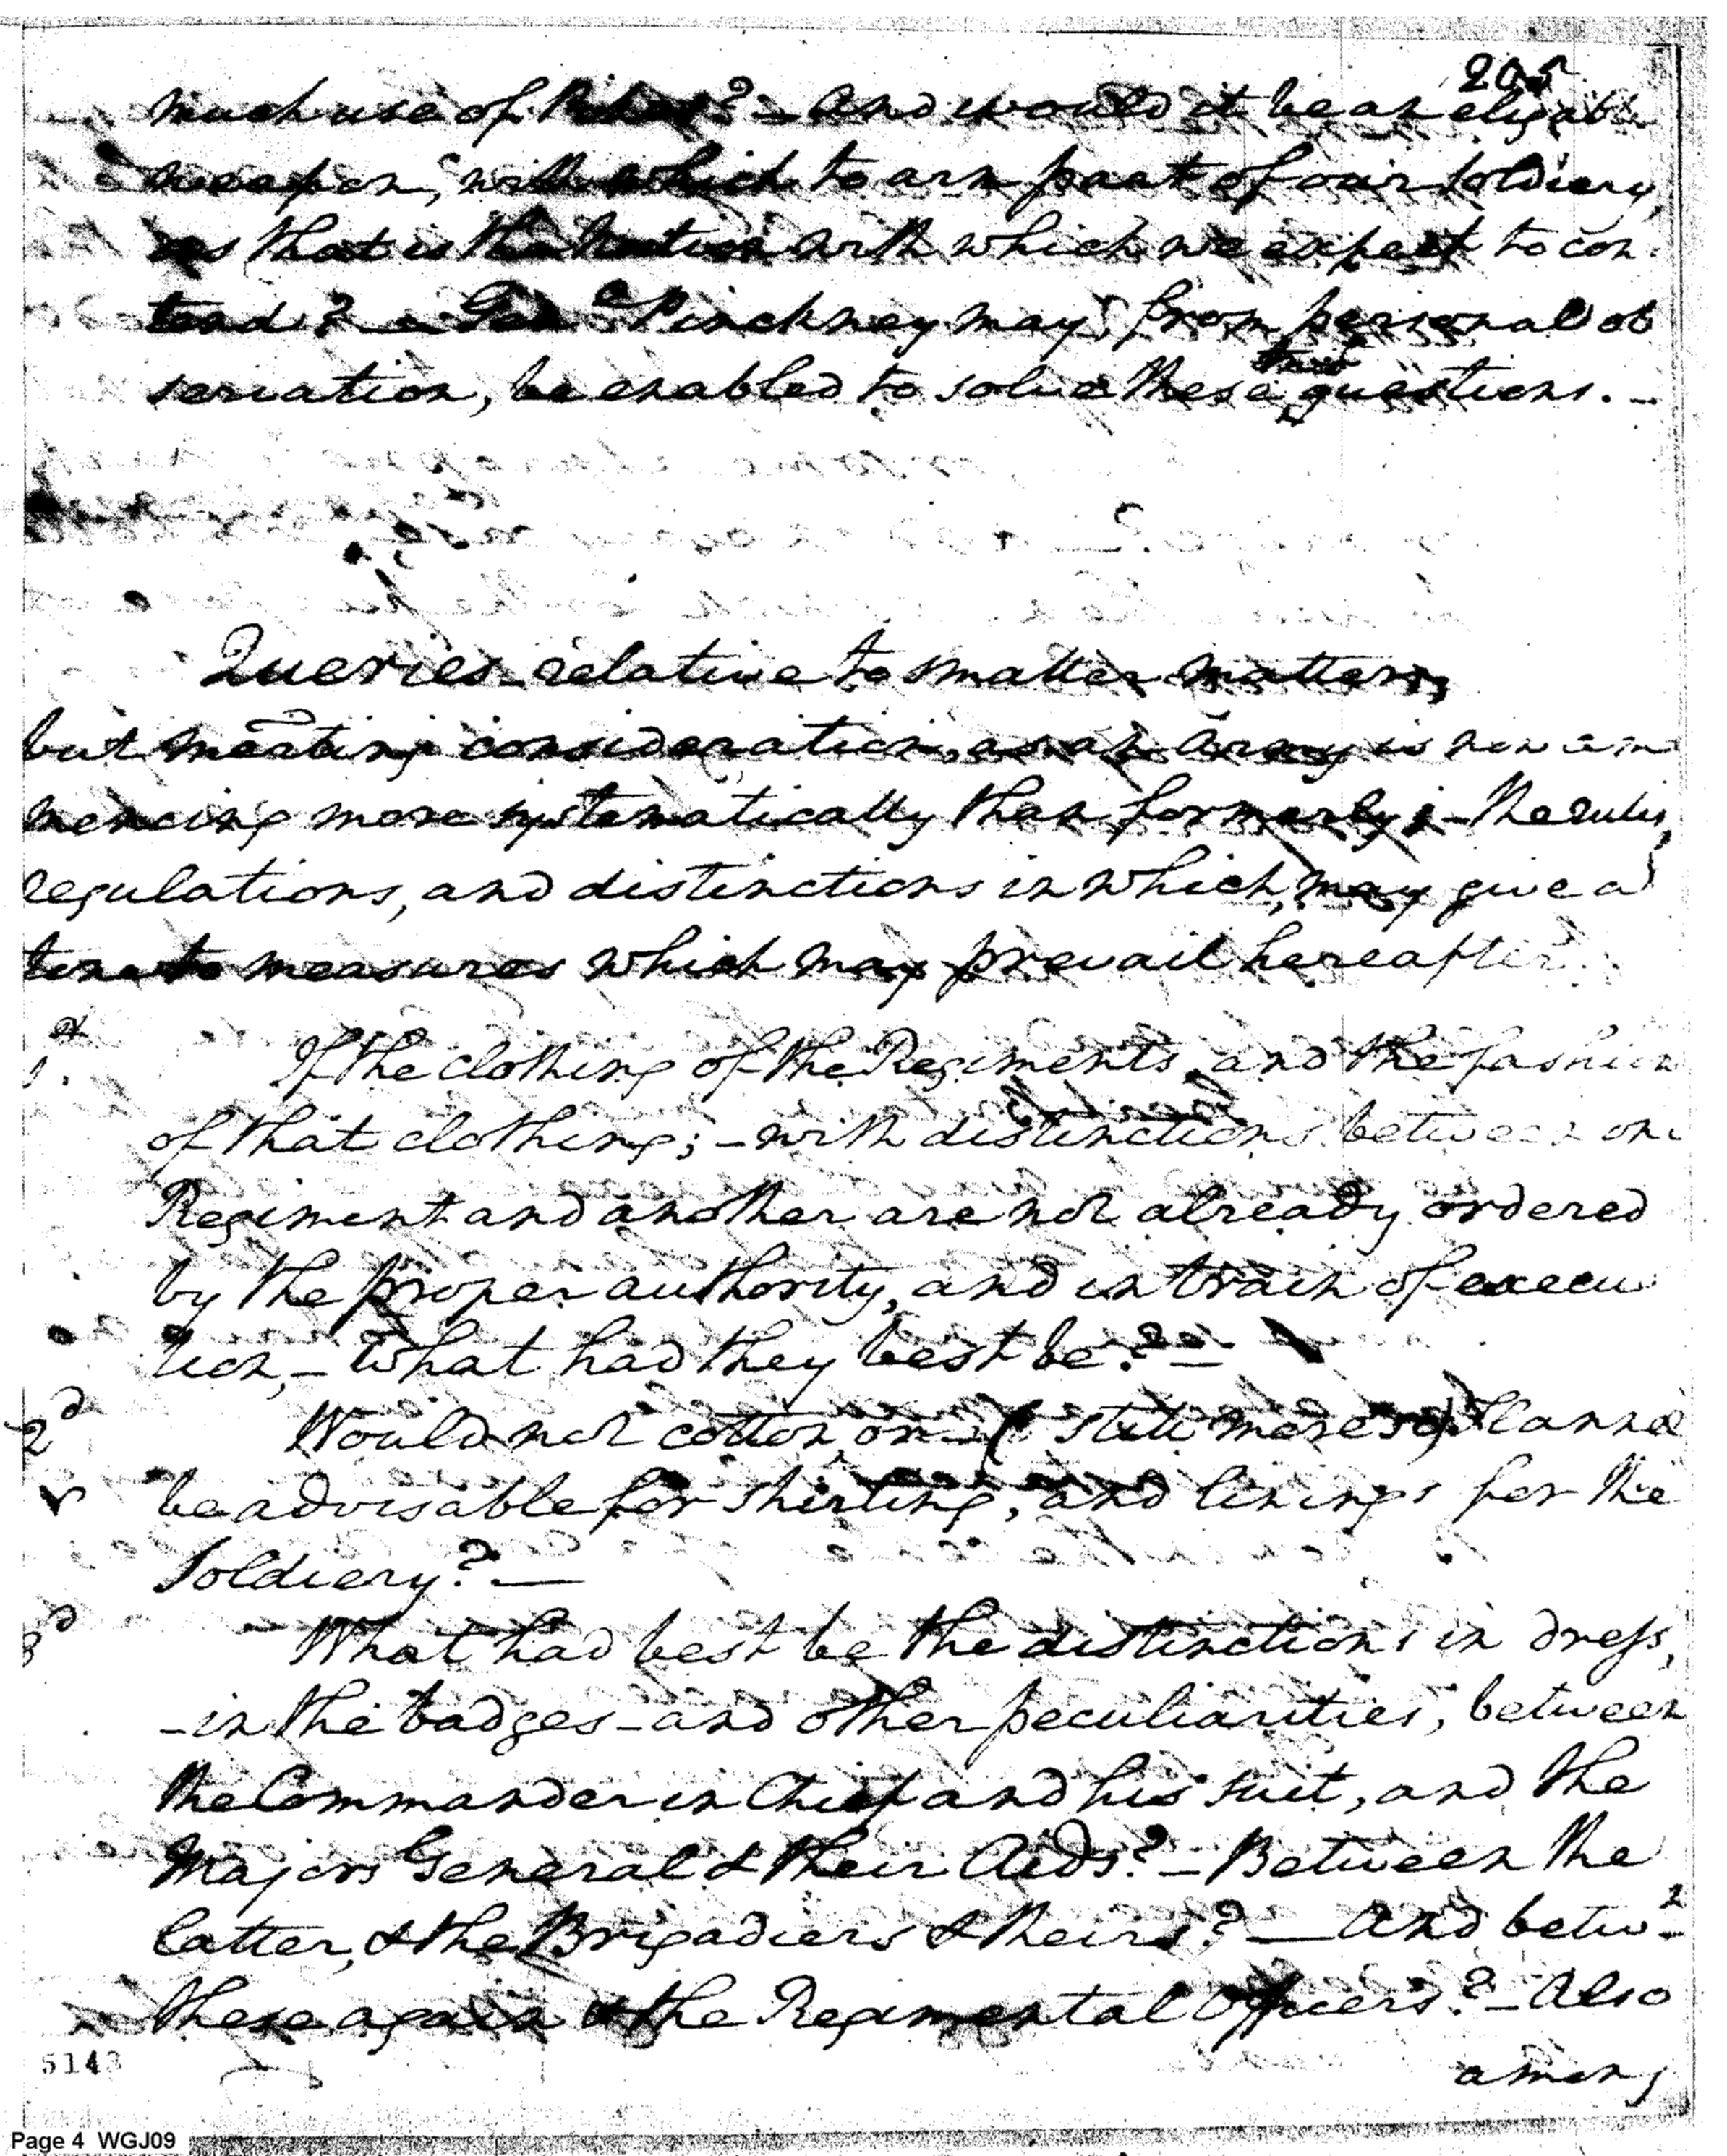 205
much use of Pikes? – And would it be an eligable
weapon, with which to arm part of our soldiery,
as that is the Nation with which we expect to con-
tend? – Genl Pinckney may, from personal ob
servation, be enabled to solve these two questions. –
Queries relative to smaller matters,
but meriting consideration, as an Army is now com
mencing more systematically than formerly; – the rules,
regulations, and distinctions in which, may give a
tone to measures which may prevail hereafter.
1st
If the clothing of the Regiments, and the fashion
of that clothing; – with distinctions between one
Regiment and another are not already ordered
by the proper authority, and in train of execu
tion, – What had they best be? –
2d
Would not cotton, or – (still more so) Flannel
be advisable for shirting, and linings for the
Soldiery? –
3d
What had best be the distinctions in dress,
– in the badges – and other peculiarities, between
the Commander in Chief and his suit, and the
Majors General & their Aids? – Between the
latter, & the Brigadiers & theirs? – And betwn
these again & the Regimental Officers? – Also
among
5143
Page 4 WGJ09